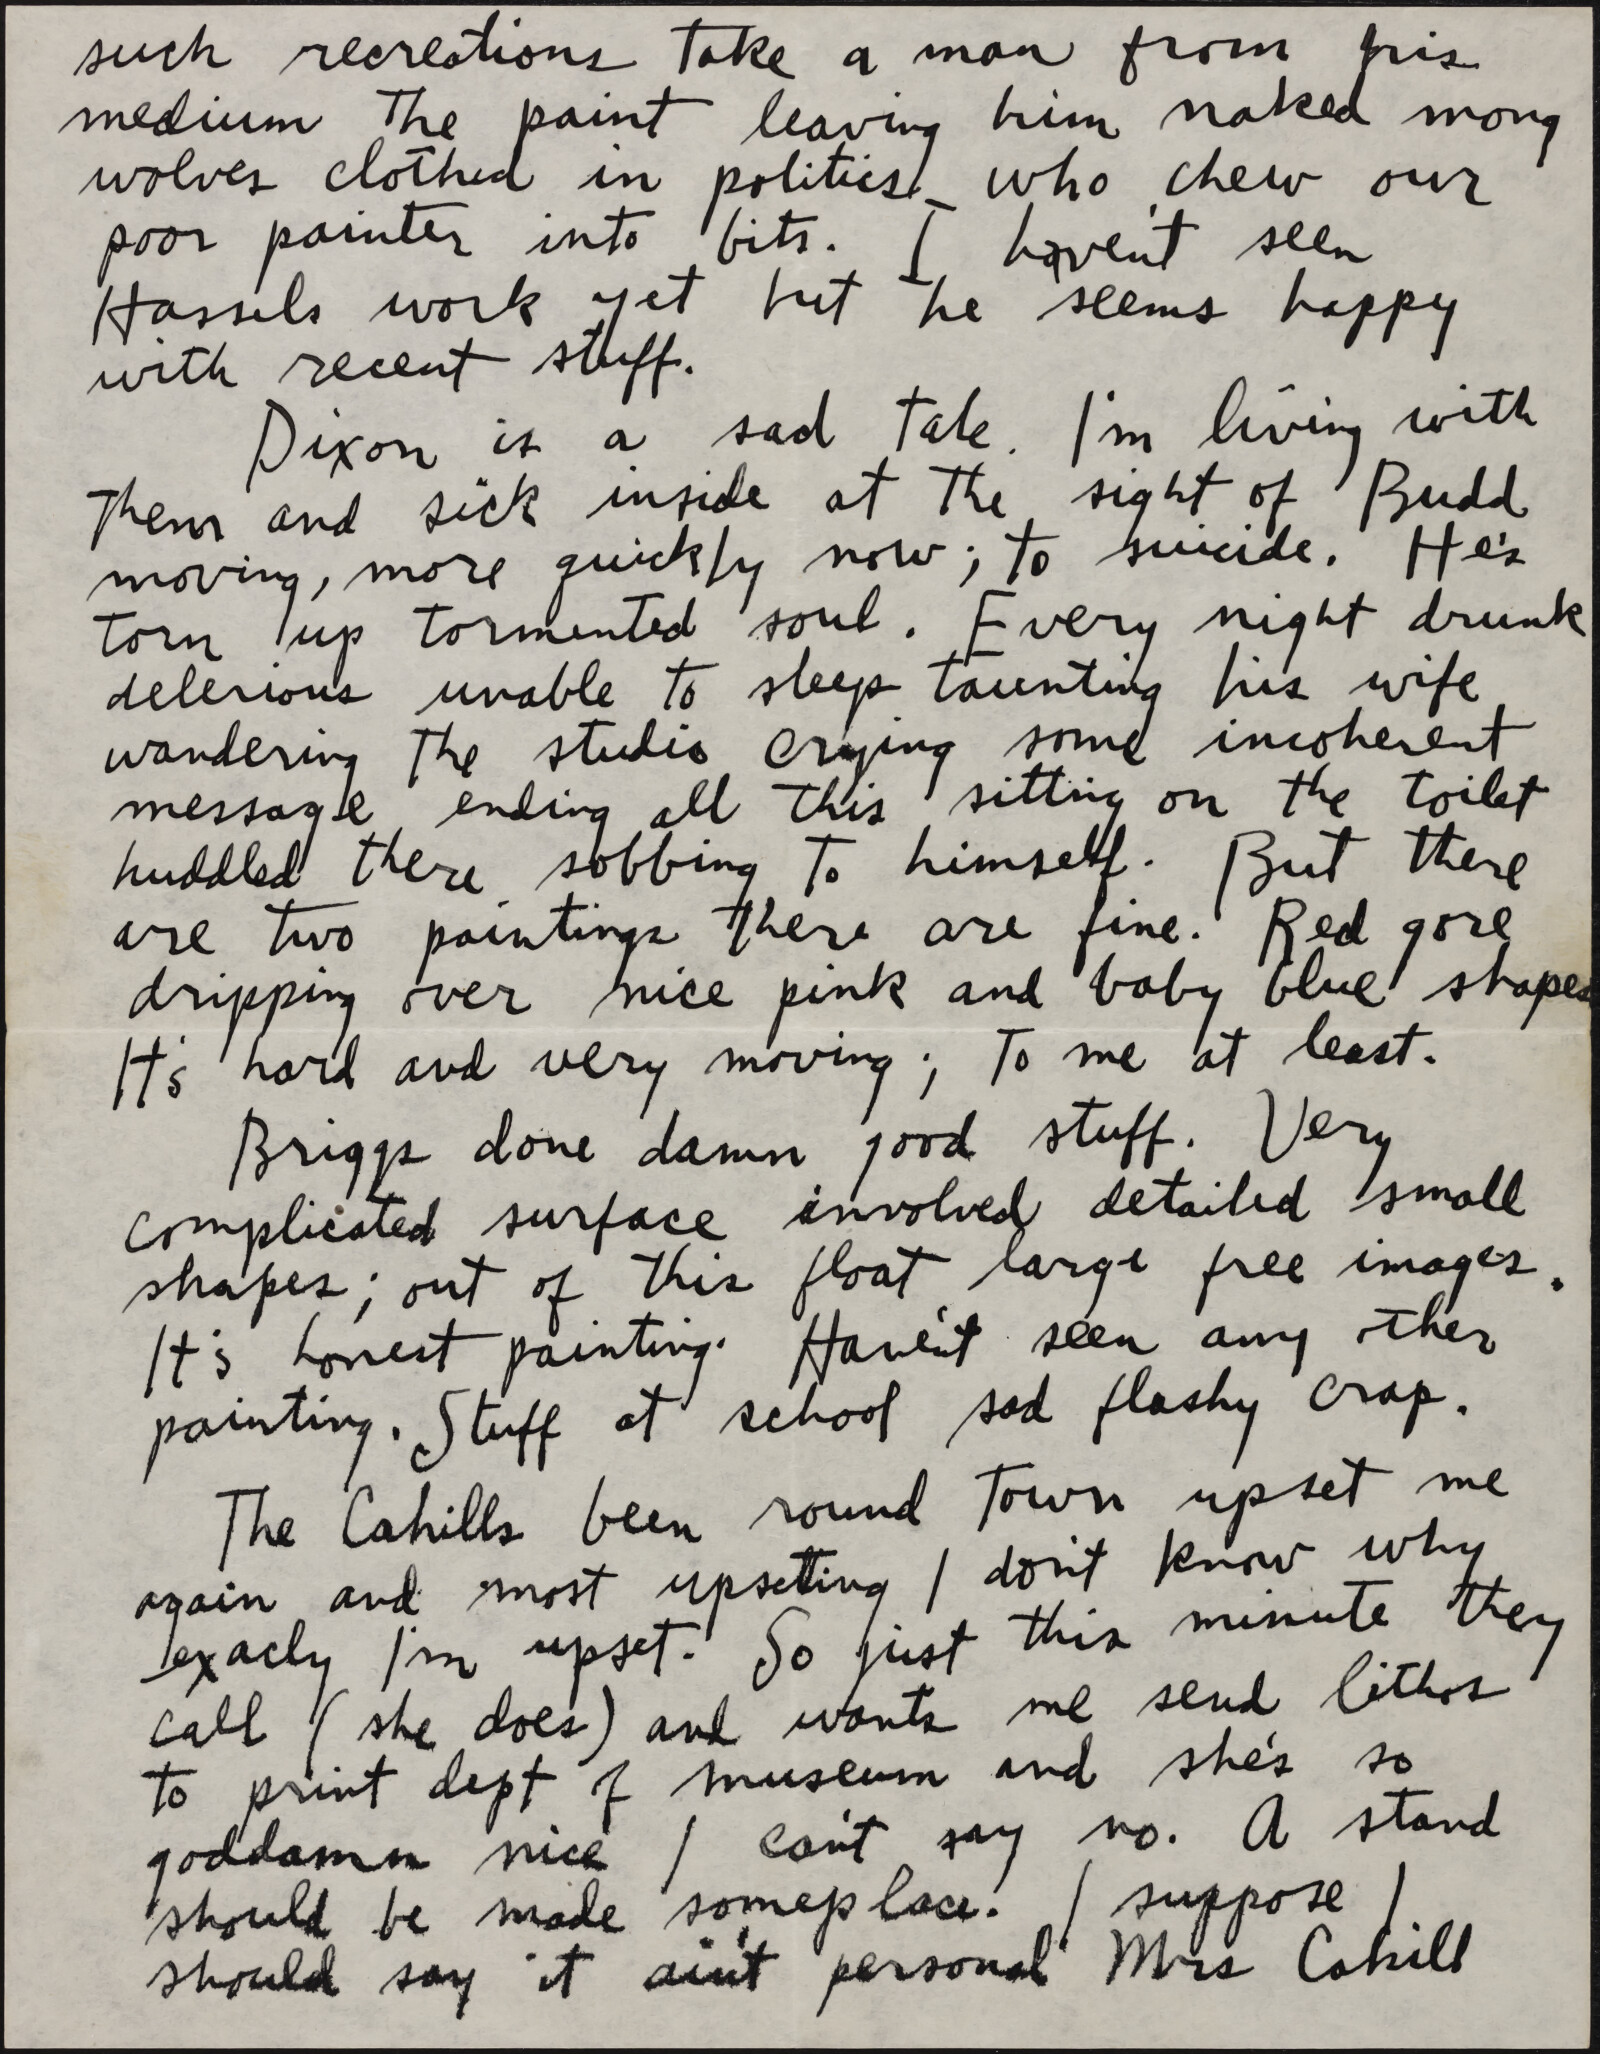 such recreations take a man from his
medium the paint leaving him naked mong
wolves clothed in politics who chew our
poor painter into bits. I haven't seen
Hassels work yet but he seems happy
with recent stuff.
Dixon is a sad tale. I'm living with
them and sick inside at the sight of Budd
moving, more quickly now; to suicide. He's
torn up tormented soul. Every night drunk
delerious unable to sleep taunting his wife
wandering the studio crying some incoherent
message ending all this sitting on the toilet
huddled there sobbing to himself. But there
are two paintings there are fine. Red gore
dripping over nice pink and baby blue shapes
It's hard and very moving; to me at least.
Briggs done damn good stuff. Very
complicated surface involved detailed small
shapes; out of this float large free images.
It's honest painting. Haven't seen any other
painting. Stuff at school sad flashy crap.
The Cahills been round town upset me
again and most upsetting I don't know why
exacly I'm upset. So just this minute they
call (she does) and wants me send lithos
to print dept of museum and she's so
goddamn nice I can't say no. A stand
should be made someplace. I suppose I
should say it ain't personal Mrs Cahill